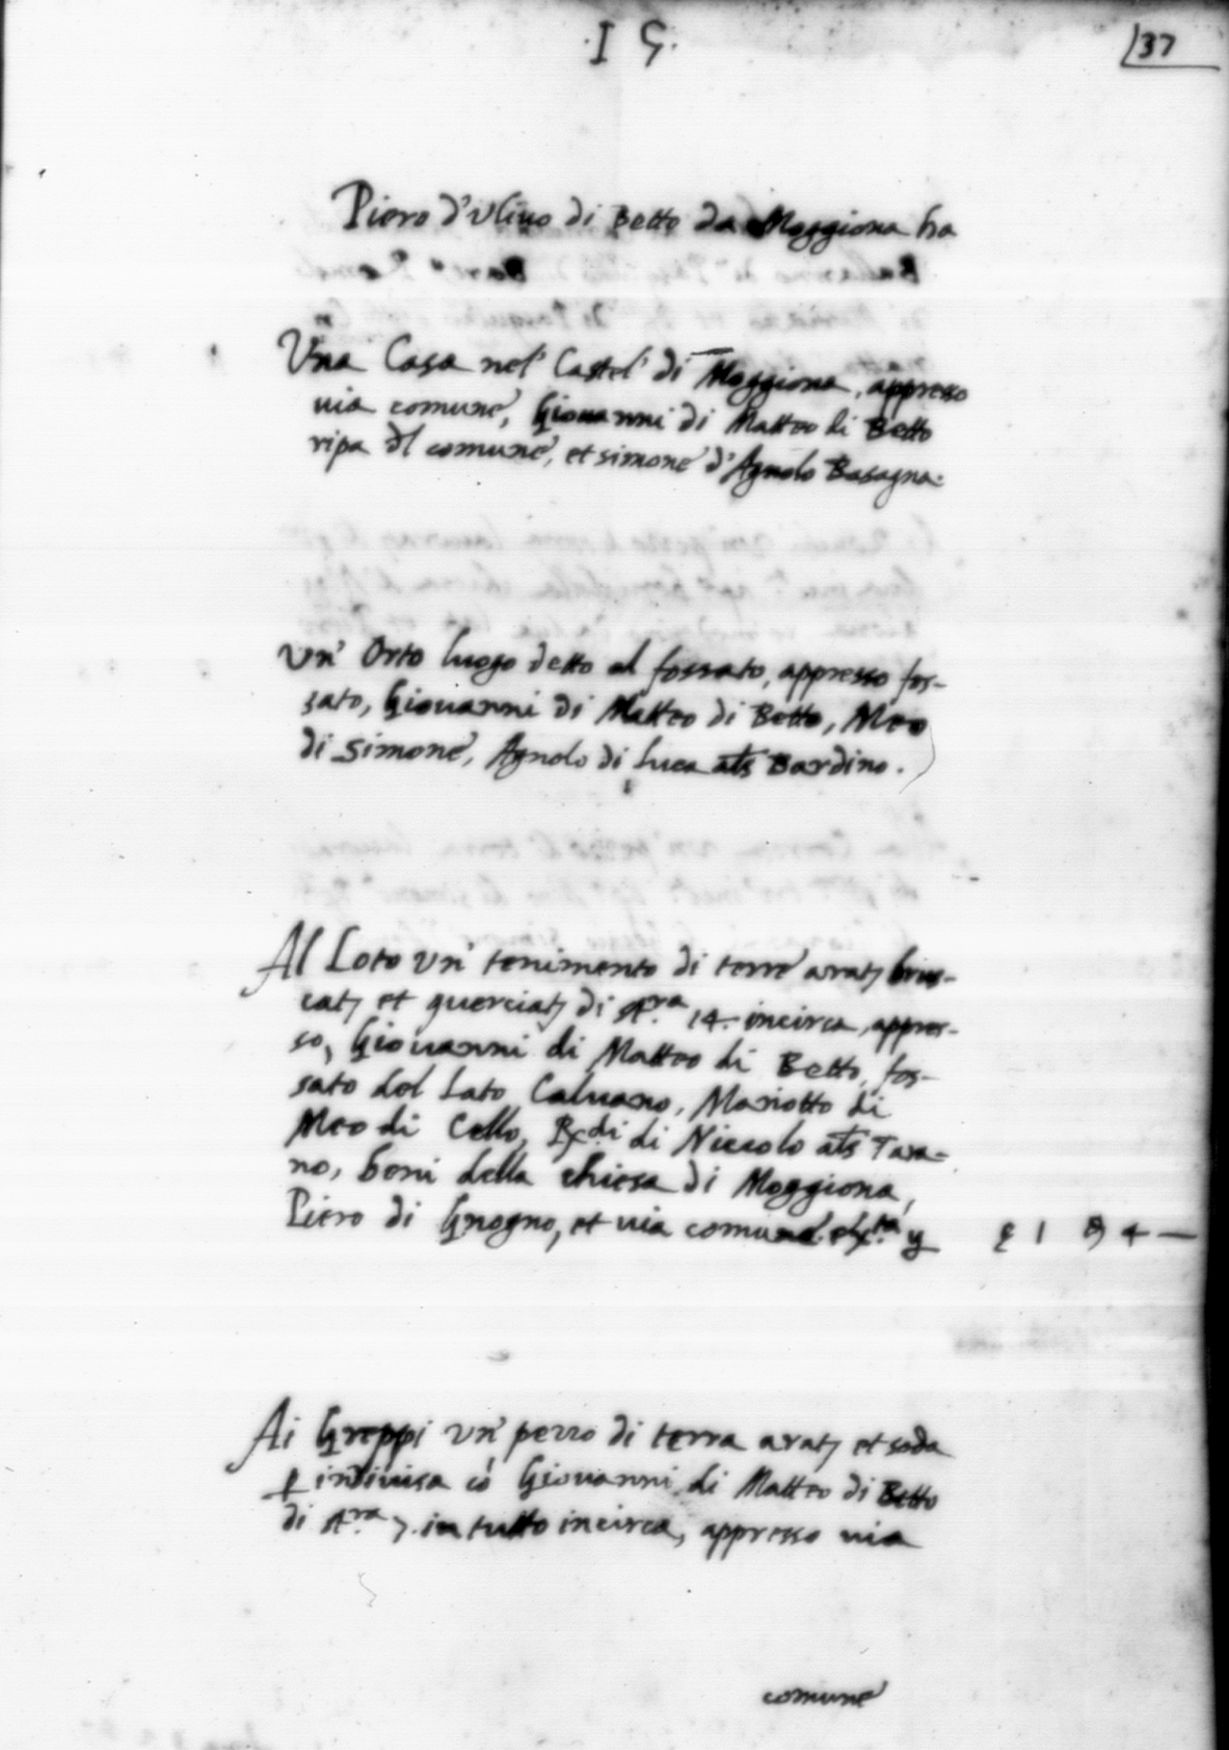 ·I 5·
37
Piero d'Ulivo di Betto da Moggiona ha
Una Casa nel' Castel' di Moggiona, appresso
via comune, Giovanni di Matteo di Betto
ripa dl comune, et simone d'Agnolo Basagna.
Un' Orto luogo detto al fossato, appresso fos-
sato, Giovanni di Matteo di Betto, Meo
di Simone, Agnolo di Luca als Bardino.
Al Loto un' tenimento di terre arat, brus-
cat, et querciat, di st.ra 14. incirca, appres-
so, Giovanni di Matteo di Betto, fos-
sato del Lato Calvano, Mariotto di
Meo di Cello, Rx.di di Niccolo als Tara-
no, beni della chiesa di Moggiona,
Piero di Gnogno, et via comune.
1 4 —
Ai Greppi un' pezzo di terra arat, et soda
p indivisa cò Giovanni di Matteo di Betto
di st.ra 7. in tutto incirca, appresso via
comune